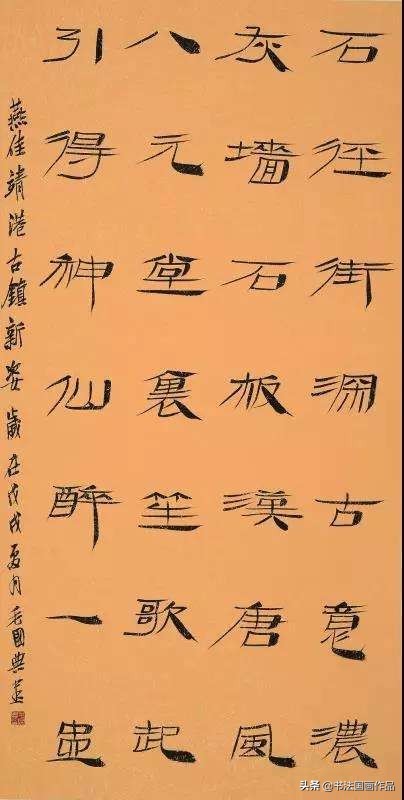 石径街深古意濃
灰墙石板漢唐風
八元堂裏笙歌起
引得神仙醉一盅
燕佳靖港古鎮新姿 歲在戊戌夏月毛國典書
头条 @书法国画作品